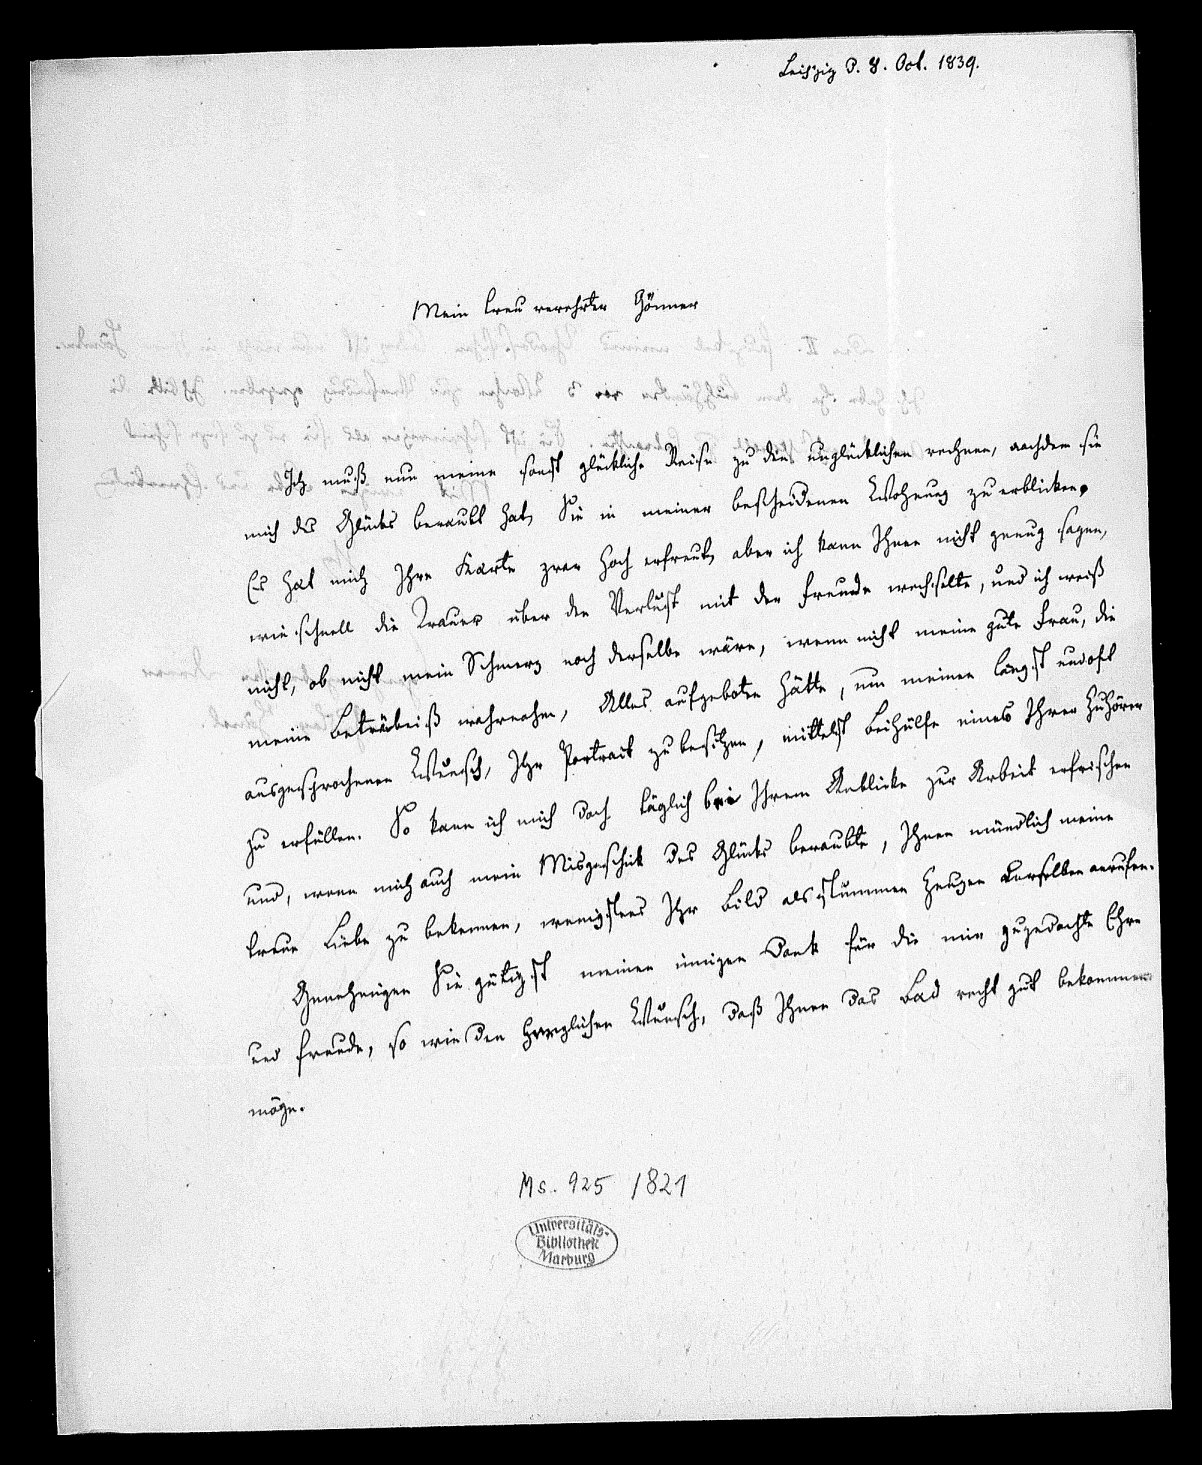 Leipzig d. 8. Oct. 1839.
Mein treu verehrter Gönner
Ich muß nun meine sonst glückliche Reise zu den unglücklichen rechnen, nachdem sie
mich des Glücks beraubt hat, Sie in meiner bescheidenen Wohnung zu erblicken.
Es hat mich Ihre Karte zwar hoch erfreut, aber ich kann Ihnen nicht genug sagen,
wie schnell die Trauer über den Verlust mit der Freude wechselte, und ich weiß
nicht, ob nicht mein Schmerz noch derselbe wäre, wenn nicht meine gute Frau, die
meine Betrübniß wahrnahm, Alles aufgeboten hätte, um meinen längst und oft
ausgesprochenen Wunsch, Ihr Portrait zu besitzen, mittelst Beihülfe eines Ihrer Zuhörer
zu erfüllen. So kann ich mich doch täglich bei Ihrem Anblicke zur Arbeit erfrischen
und, wenn mich auch mein Misgeschick des Glücks beraubte, Ihnen mündlich meine
treue Liebe zu bekennen, wenigstens Ihr Bild als stummen Zeugen derselben anrufen.
Genehmigen Sie gütigst meinen innigen Dank für die mir zugedachte Ehre
und Freude, so wie den herzlichen Wunsch, daß Ihnen das Bad recht gut bekommen
möge.
Ms. 925 /821
Universitäts-
Bibliothek
Marburg